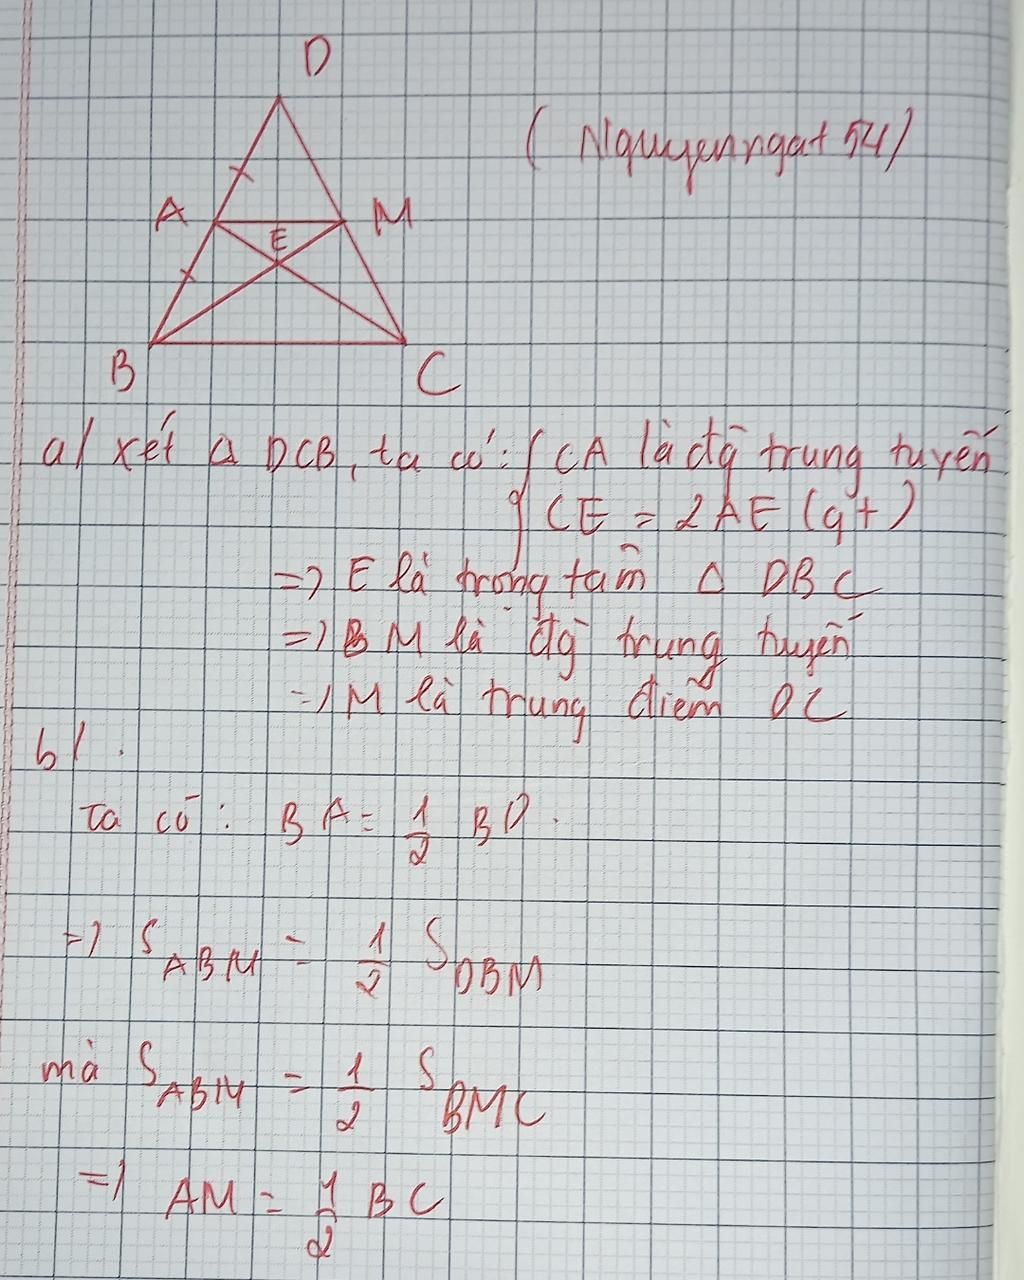 D
( Nguyenngat 54)
A
M
E
B
C
a/ xét Δ DCB, ta có: { CA là đg trung tuyến
CE = 2AE (gt)
=> E là trọng tâm Δ DBC
=> BM là đg trung tuyến
=> M là trung điểm DC
b/.
Ta có: BA = 1/2 BD.
=> S_ABM = 1/2 S_DBM
mà S_ABM = 1/2 S_BMC
=> AM = 1/2 BC